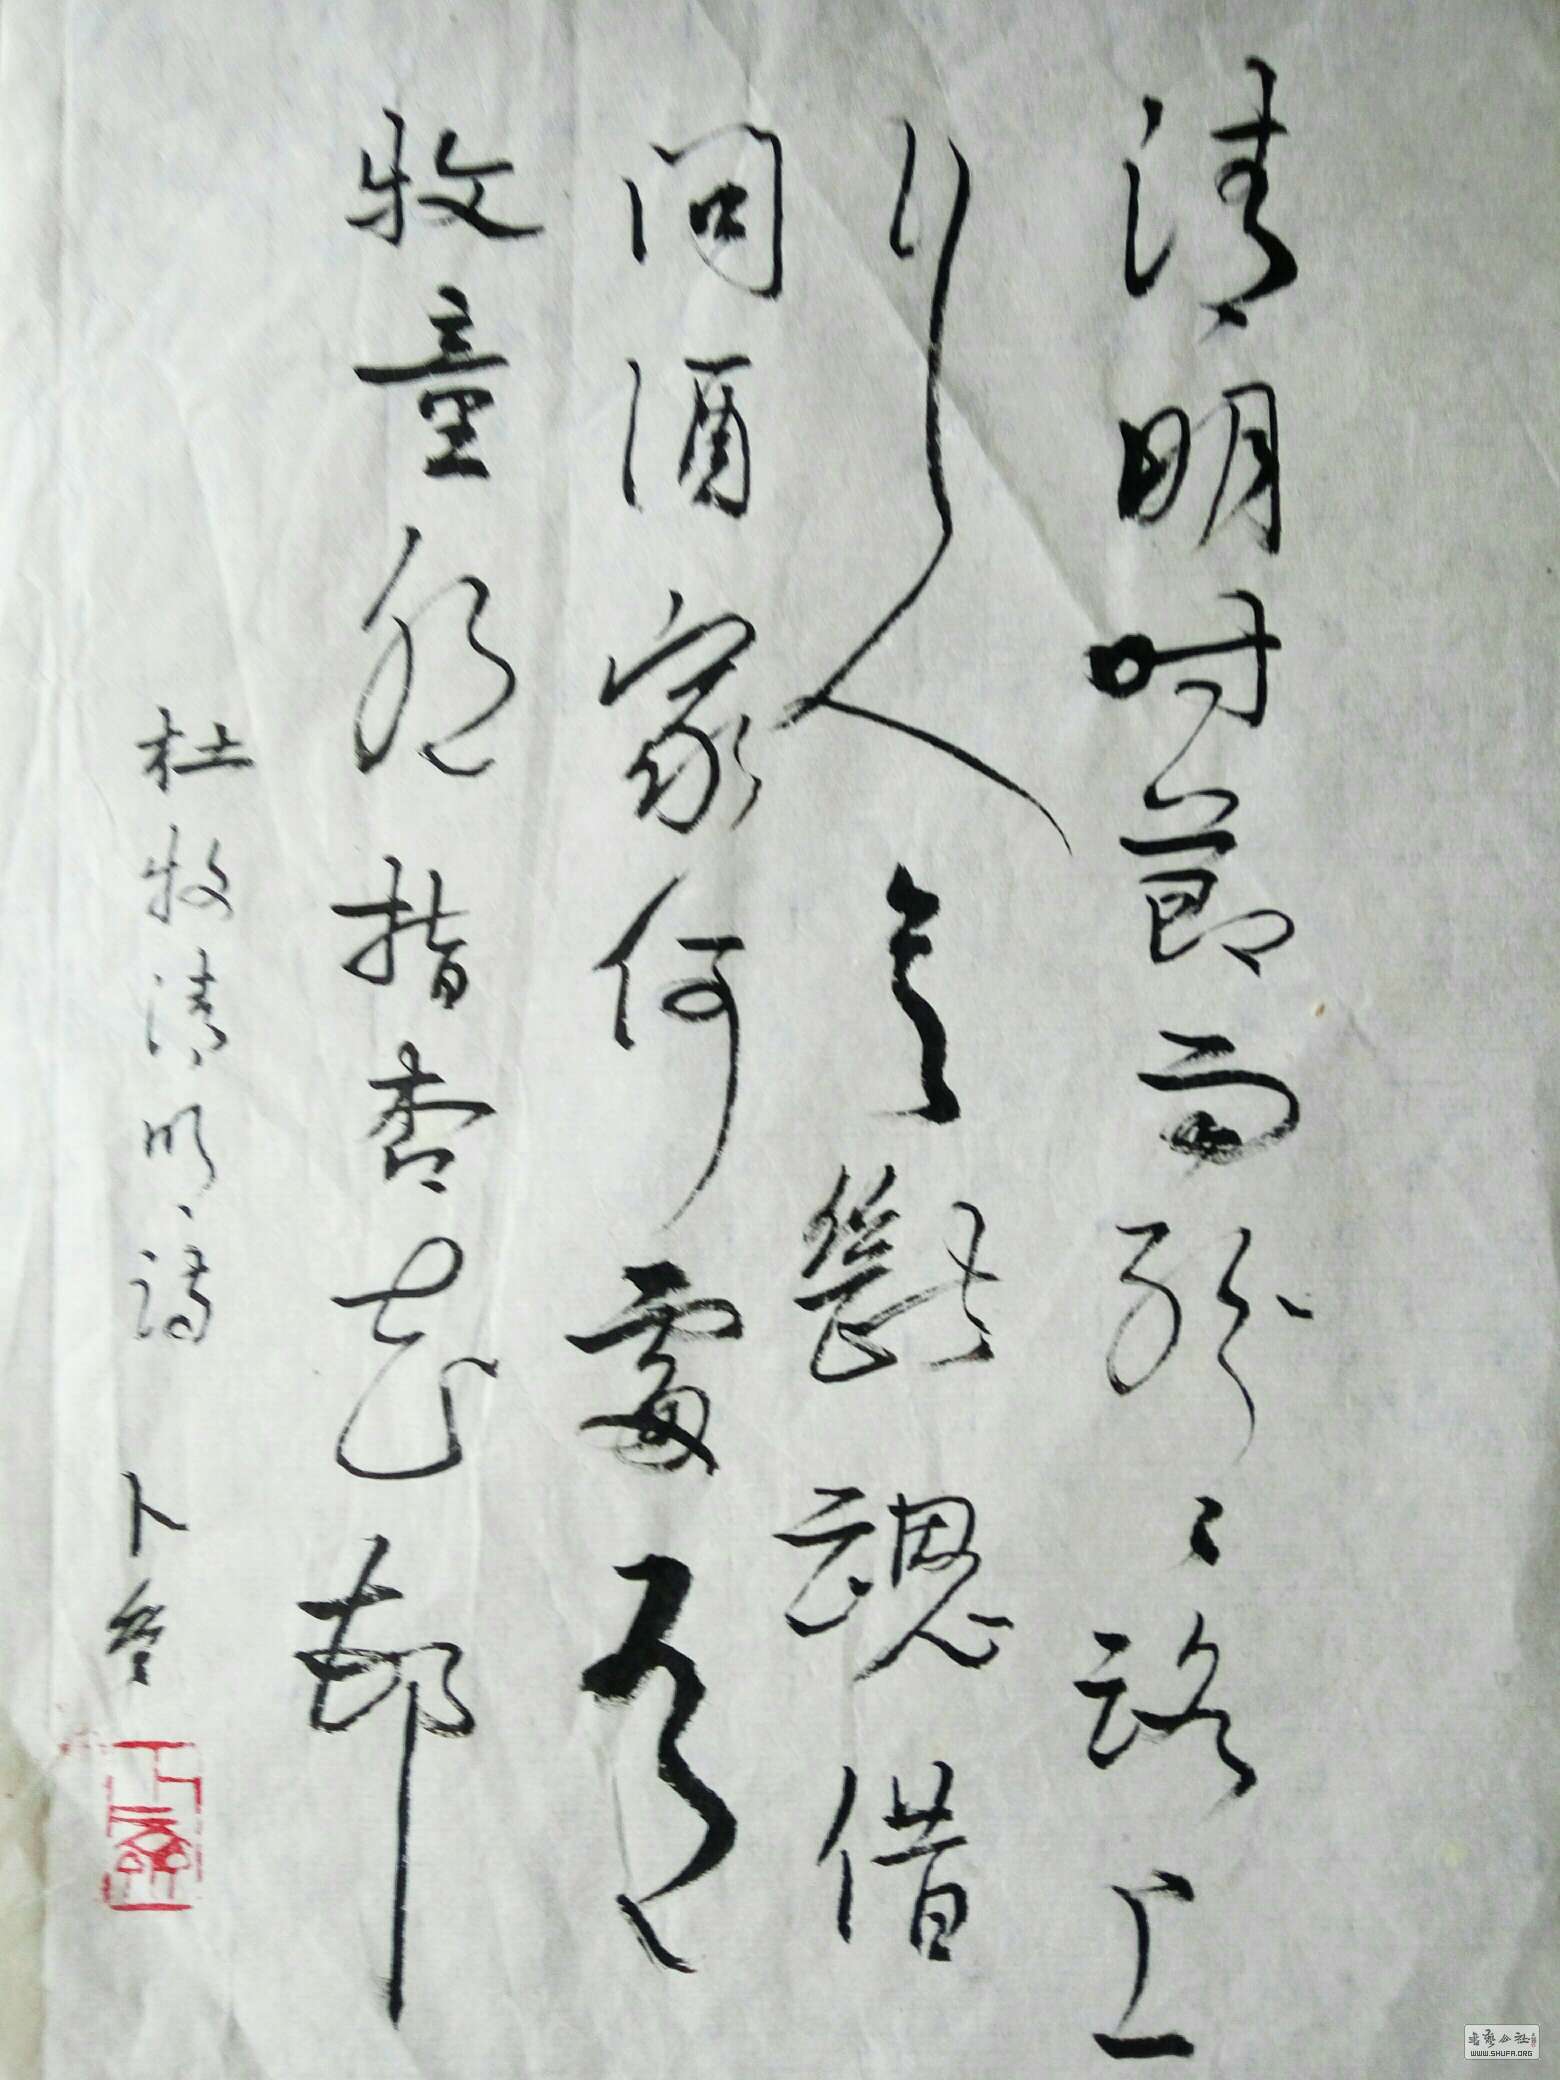 清明时節雨纷々路上
行人欲斷魂借
问酒家何處有
牧童遥指杏花邨
杜牧清明诗 卜
WWW.SHUFA.ORG